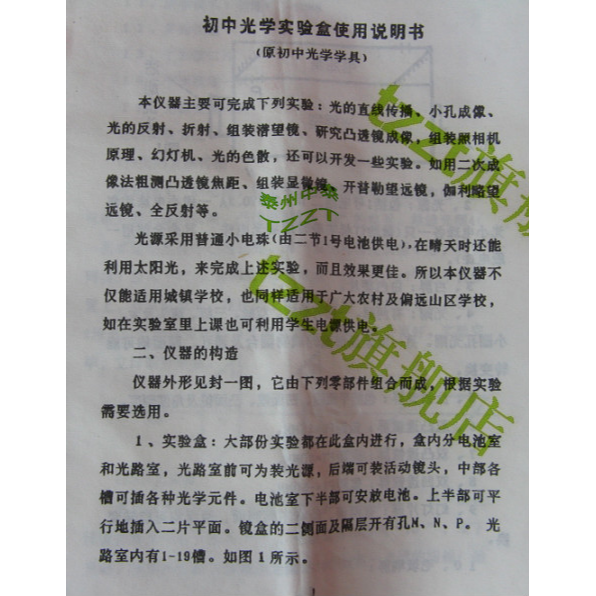 初中光学实验盒使用说明书
(原初中光学学具)
本仪器主要可完成下列实验：光的直线传播、小孔成像、
光的反射、折射、组装潜望镜、研究凸透镜成像，组装照相机
原理、幻灯机、光的色散，还可以开发一些实验。如用二次成
像法粗测凸透镜焦距、组装显微镜、开普勒望远镜，伽利略望
远镜、全反射等。
光源采用普通小电珠(由二节1号电池供电)，在晴天时还能
利用太阳光，来完成上述实验，而且效果更佳。所以本仪器不
仅能适用城镇学校，也同样适用于广大农村及偏远山区学校，
如在实验室里上课也可利用学生电源供电。
二、仪器的构造
仪器外形见封一图，它由下列零部件组合而成，根据实验
需要选用。
1、实验盒：大部份实验都在此盒内进行，盒内分电池室
和光路室，光路室前可为装光源，后端可装活动镜头，中部各
槽可插各种光学元件。电池室下半部可安放电池。上半部可平
行地插入二片平面。镜盒的二侧面及隔层开有孔M、N、P。光
路室内有1-19槽。如图1所示。
tzzt旗舰店
泰州中泰
TZZT
tzzt旗舰店